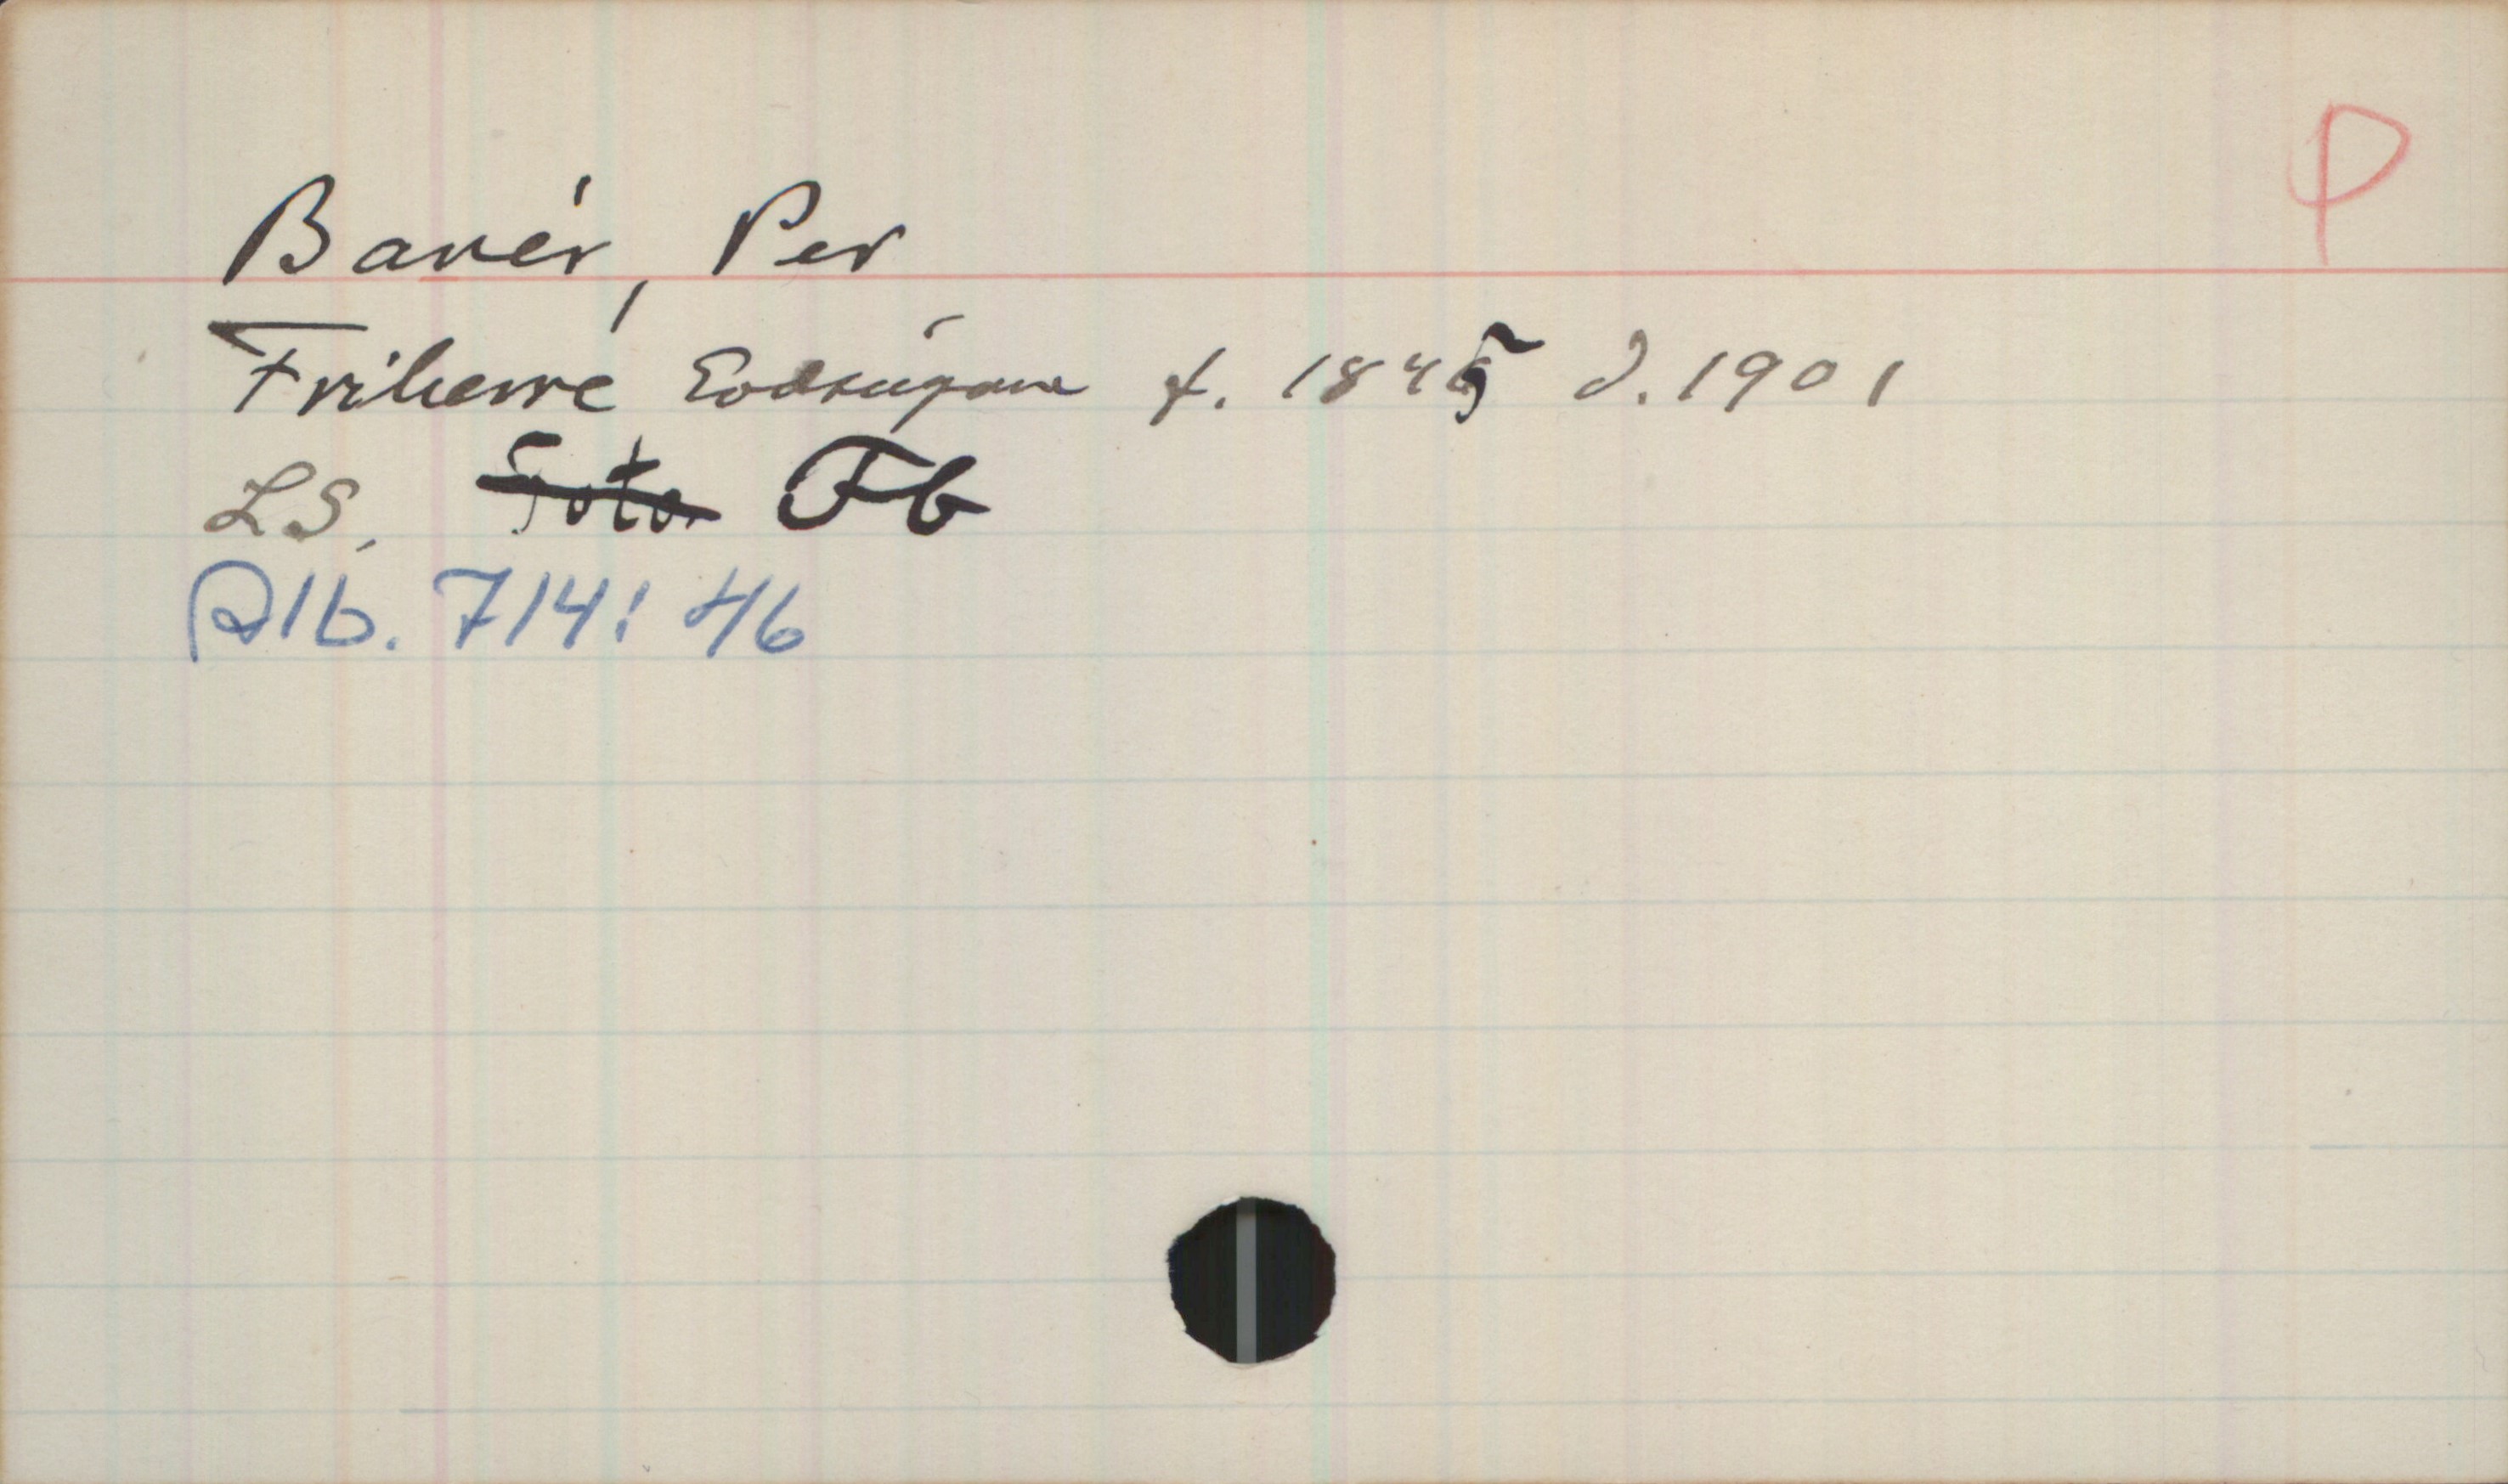 P
Banér, Per
Friherre Godsägare f. 1845 d. 1901
LS, Foto Fb
Alb. 714: 46